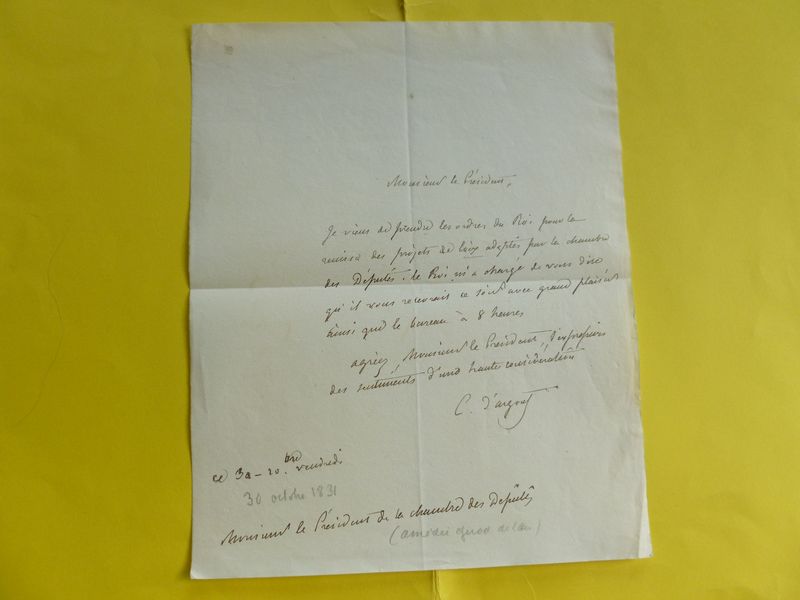 Monsieur le Président,
Je viens de prendre les ordres du Roi pour la
remise des projets de loix adoptés par la chambre
des Députés. le Roi m'a chargé de vous dire
qu'il vous recevrait ce soir avec grand plaisir
ainsi que le bureau à 8 heures
agréez, Monsieur le Président, l'expression
des sentiments d'une haute considération
C. d'argout
ce 30 - vendredi
30 octobre 1831
Monsieur le Président de la chambre des Députés
(amédée de